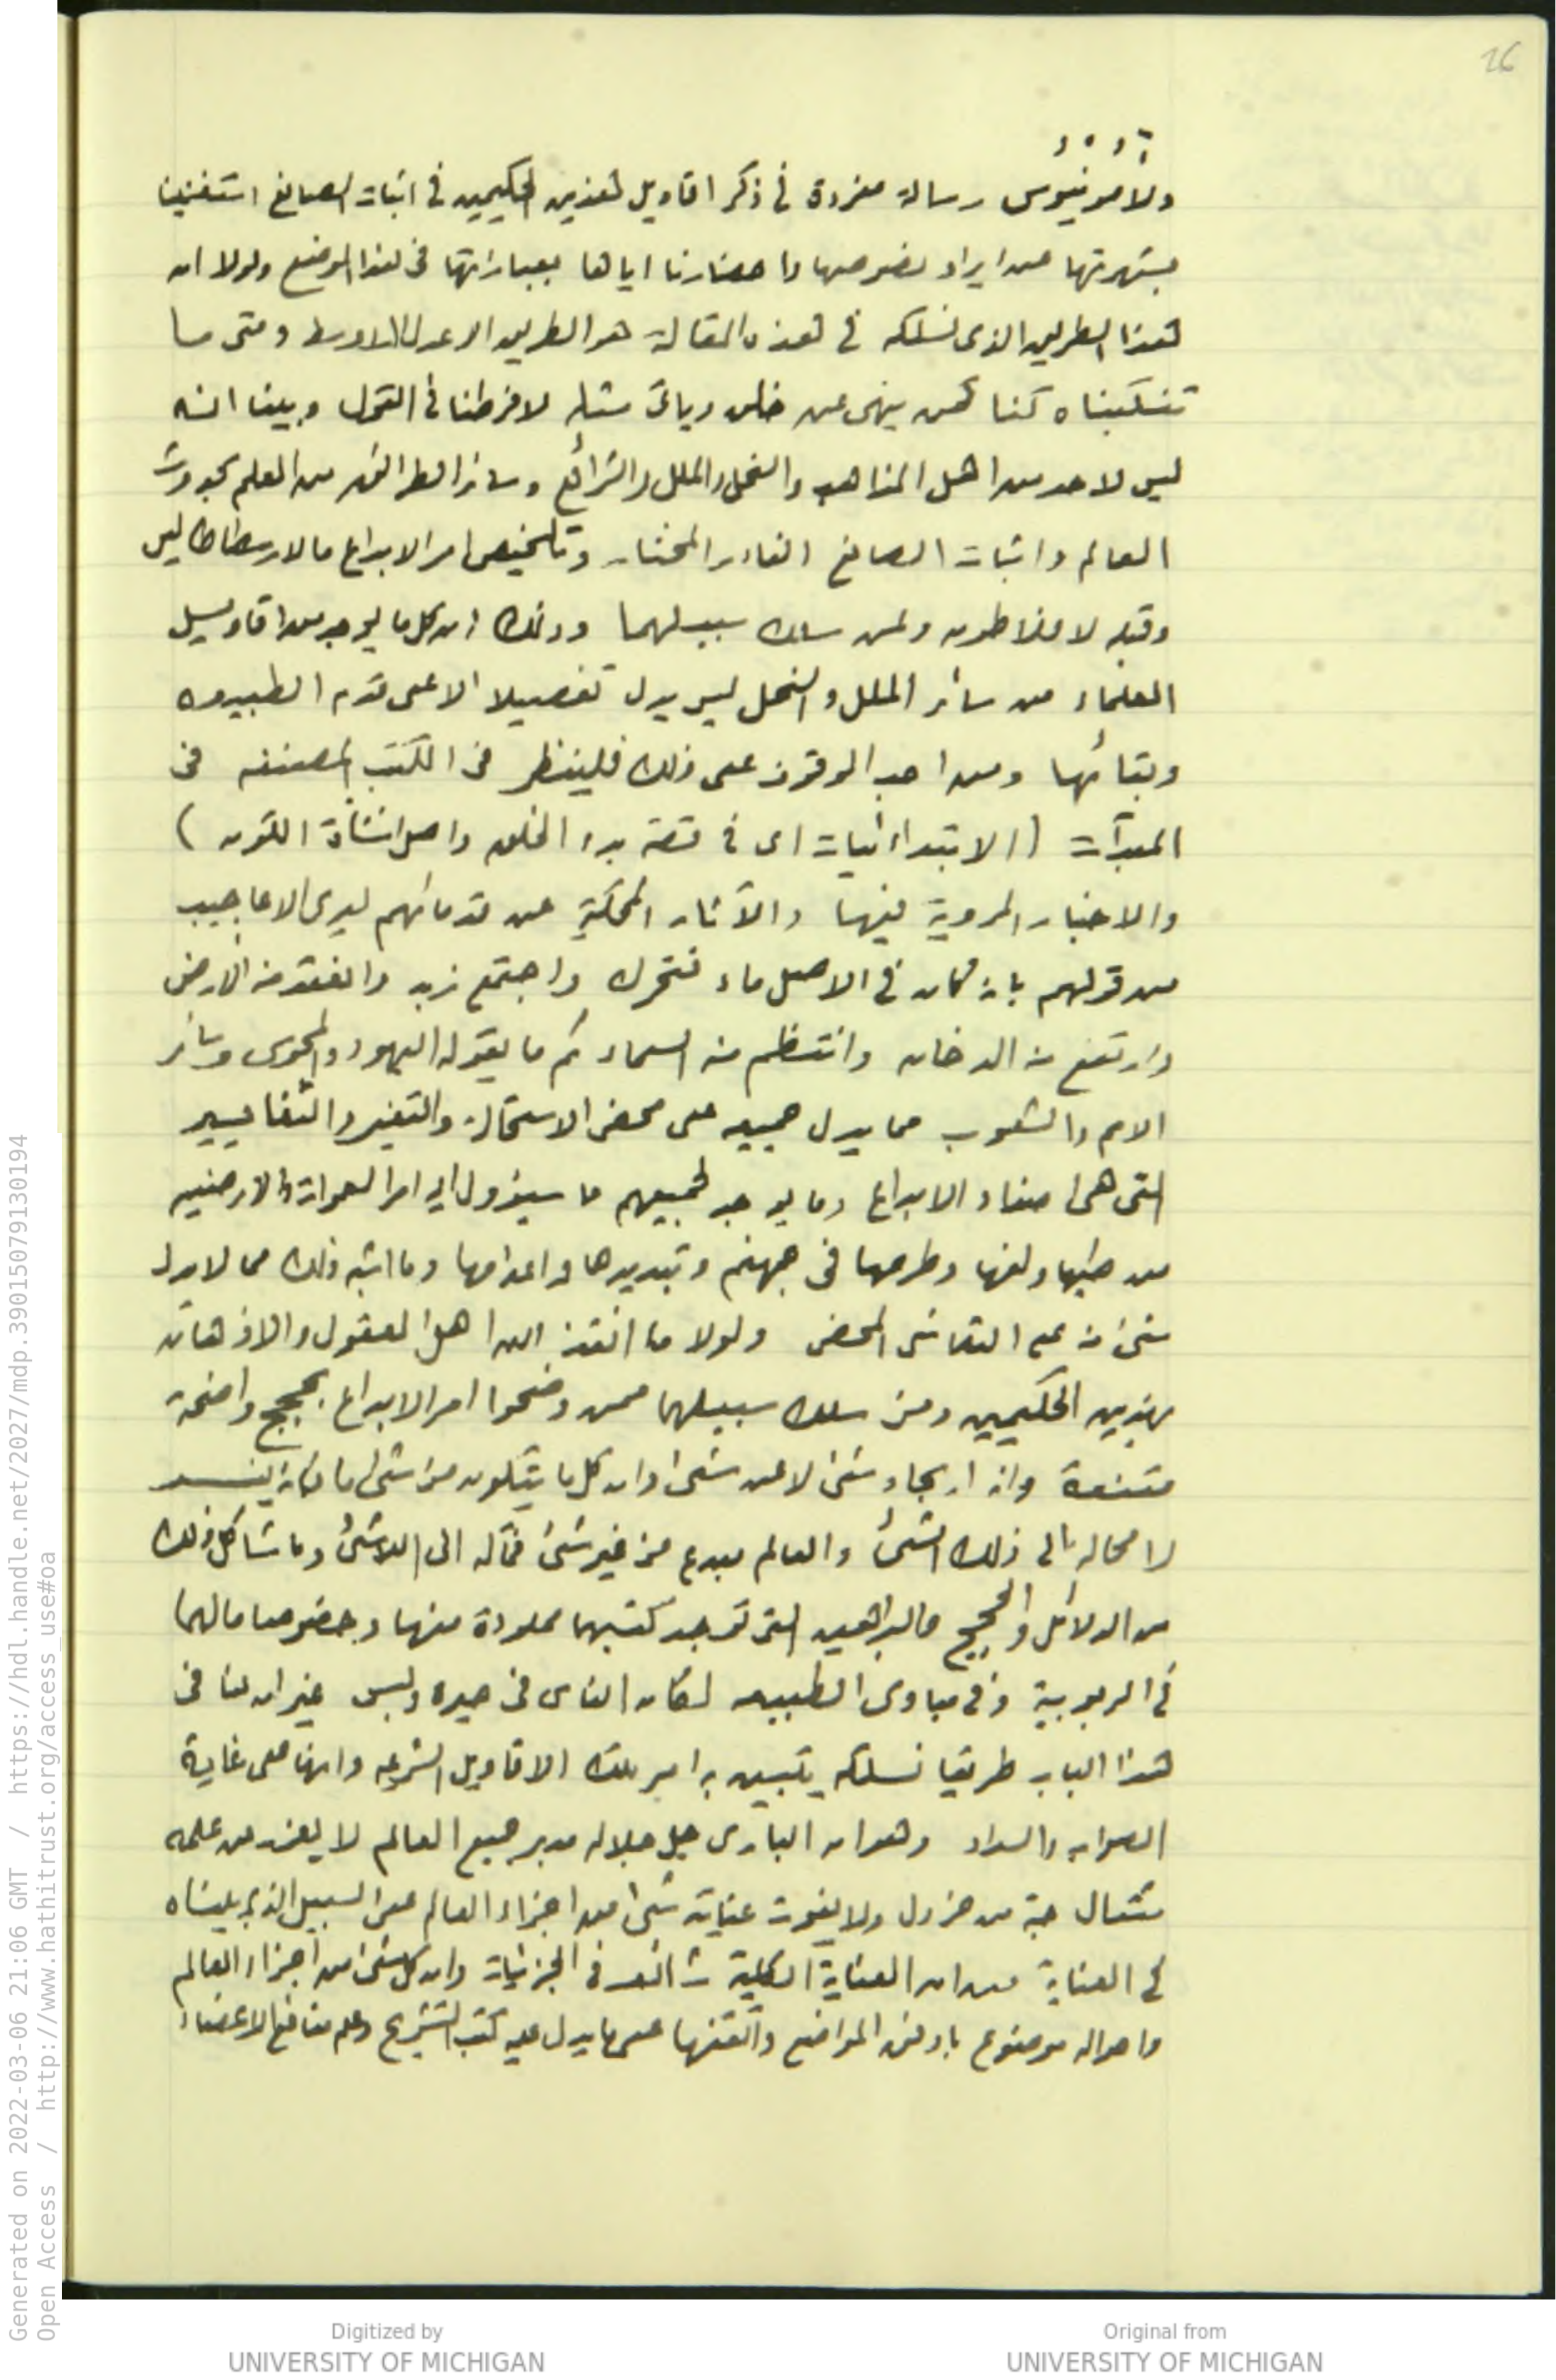 26
ولامونيوس رسالة مفردة في ذكر اقاويل هذين الحكيمين في اثبات الصانع استغنينا
بشهرتها عن ايراد نصوصها واحضارنا اياها بعباراتها في هذا الموضع ولولا ان
هذا الطريق الذى نسلكه في هذه المقالة هو الطريق الاعدل الاوسط ومتى ما
تنكبناه كنا كمن ينهى عن خلق وياتى مثله لافرطنا في القول وبينا انه
ليس لاحد من اهل المذاهب والنحل والملل والشرائع وسائر الطرائق من العلم بحدوث
العالم واثبات الصانع القادر المختار وتلخيص امر الابداع ما لارسطاطاليس
وقبله لافلاطون ولمن سلك سبيلهما وذلك ان كل ما يوجد من اقاويل
العلماء من سائر الملل والنحل ليس يدل تفصيلا الا على قدم الطبيعه
وبقائها ومن احب الوقوف على ذلك فلينظر فى الكتب المصنفه فى
المبدآت (الابتدائيات اى في قصة بدء الخلق واصل انشاة الكون)
والاخبار المروية فيها والآثار المحكية عن قدمائهم ليرى الاعاجيب
من قولهم بانه كان في الاصل ماء فتحرك واجتمع زبد وانعقد منه الارض
وارتفع منه الدخان وانتظم منه السماء ثم ما يقوله اليهود والمجوس وسائر
الامم والشعوب مما يدل جميعه على محض الاستحالة والتغير والتغايير
التى هى اضداد الابداع وما يوجد لجميعهم ما سيؤول اليه امر السموات والارضين
من طيها ولفها وطرحها فى جهنم وتبديدها واعدامها وما اشبه ذلك مما لا يدل
شئ منه على التلاشى المحض ولولا ما انقذ الله اهل العقول والاذهان
بهذين الحكيمين ومن سلك سبيلهما ممن وضحوا امر الابداع بحجج واضحة
مقنعة وانه ايجاد شئ لا عن شئ وان كل ما يتكون من شئ ما فانه يفسد
لا محاله الى ذلك الشئ والعالم مبدع من غير شئ فمآله الى اللاشئ وما شاكل ذلك
من الدلائل والحجج والبراهين التى توجد كتبهما مملوءة منها وخصوصا ما لهما
في الربوبية وفى مبادى الطبيعه لكان الناس فى حيرة ولبس غير ان لنا فى
هذا الباب طريقا نسلكه يتبين به امر تلك الاقاويل الشرعيه وانها على غاية
الصواب والسداد وهو ان البارى جل جلاله مدبر جميع العالم لا يعزب عن علمه
مثقال حبة من خردل ولا يفوت عنايته شئ من اجزاء العالم على السبيل الذى بيناه
في العناية من ان العناية الكلية شائعه فى الجزئيات وان كل شئ من اجزاء العالم
واحواله موضوع باوفق المواضع واتقنها على ما يدل عليه كتب التشريح وعلم منافع الاعضاء
Generated on 2022-03-06 21:06 GMT / https://hdl.handle.net/2027/mdp.39015079130194
Open Access / http://www.hathitrust.org/access_use#oa
Digitized by
UNIVERSITY OF MICHIGAN
Original from
UNIVERSITY OF MICHIGAN